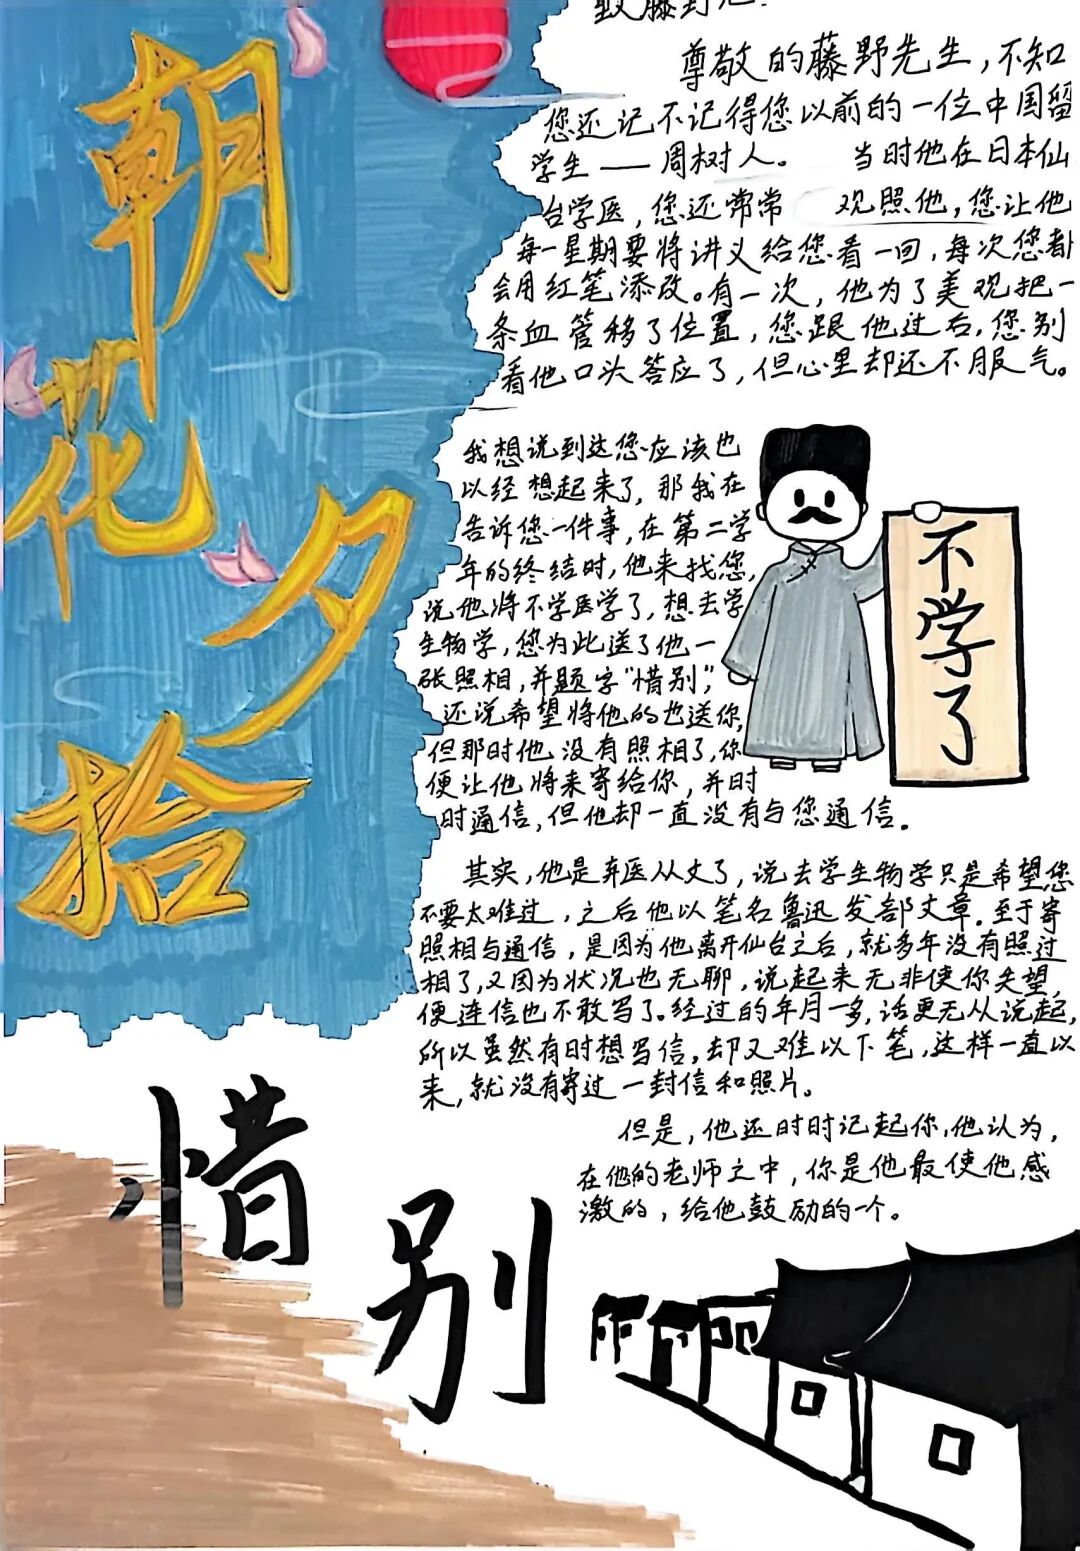 朝花夕拾
尊敬的藤野先生，不知
您还记不记得您以前的一位中国留
学生——周树人。 当时他在日本仙
台学医，您还常常 观照他，您让他
每一星期要将讲义给您看一回，每次您都
会用红笔添改。有一次，他为了美观把一
条血管移了位置，您跟他过后，您别
看他口头答应了，但心里却还不服气。
我想说到这您应该也
以经想起来了，那我在
告诉您一件事，在第二学
年的终结时，他来找您，
说他将不学医学了，想去学
生物学，您为此送了他一
张照相，并题字“惜别”，
还说希望将他的也送你，
但那时他没有照相了，你
便让他将来寄给你，并时
时通信，但他却一直没有与您通信。
不学了
其实，他是弃医从文了，说去学生物学只是希望您
不要太难过，之后他以笔名鲁迅发部文章。至于寄
照相与通信，是因为他离开仙台之后，就多年没有照过
相了，又因为状况也无聊，说起来无非使你失望，
便连信也不敢写了。经过的年月一多，话更无从说起，
所以虽然有时想写信，却又难以下笔，这样一直以
来，就没有寄过一封信和照片。
但是，他还时时记起你，他认为，
在他的老师之中，你是他最使他感
激的，给他鼓励的一个。
惜别